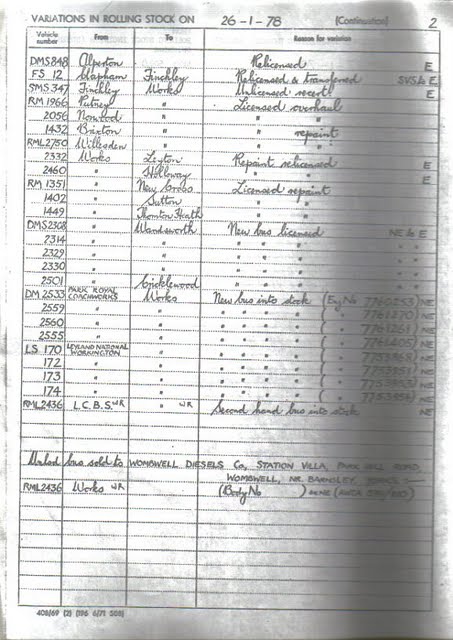 VARIATIONS IN ROLLING STOCK ON 26-1-78 (Continuation) 2
Vehicle number From To Reason for variation
DMS848 Alperton Relicensed E
FS 12 Clapham Finchley Relicensed & transferred SVS to E
SMS347 Finchley Works Unlicensed recert E
RM 1966 Putney " Licensed overhaul
2056 Norwood " " "
1432 Brixton " " repaint
RML2750 Willesden " " "
2332 Works Leyton Repaint relicensed E
2460 " Holloway " " E
RM 1351 " New Cross Licensed repaint
1402 " Sutton " "
1449 " Thornton Heath " "
DMS2308 " Wandsworth New bus licensed NE to E
2314 " " " " " "
2329 " " " " " "
2330 " " " " " "
2501 " Cricklewood " " " "
DM 2533 PARK ROYAL COACHWORKS Works New bus into stock (Eng No ) NE
2559 " " " " " " ( " ) NE
2560 " " " " " " ( " ) NE
2555 " " " " " " ( " ) NE
LS 170 LEYLAND NATIONAL WORKINGTON " " " " " ( " ) NE
172 " " " " " " ( " ) NE
173 " " " " " " ( " ) NE
174 " " " " " " ( " ) NE
RML2436 L.C.B.S. WR " WR Second hand bus into stock NE
bus sold to WOMBWELL DIESELS Co, STATION VILLA, PARK HILL ROAD,
WOMBWELL, NR. BARNSLEY,
RML2436 Works WR (Body No ) NE
408/69 (2) (196 6/71 500)